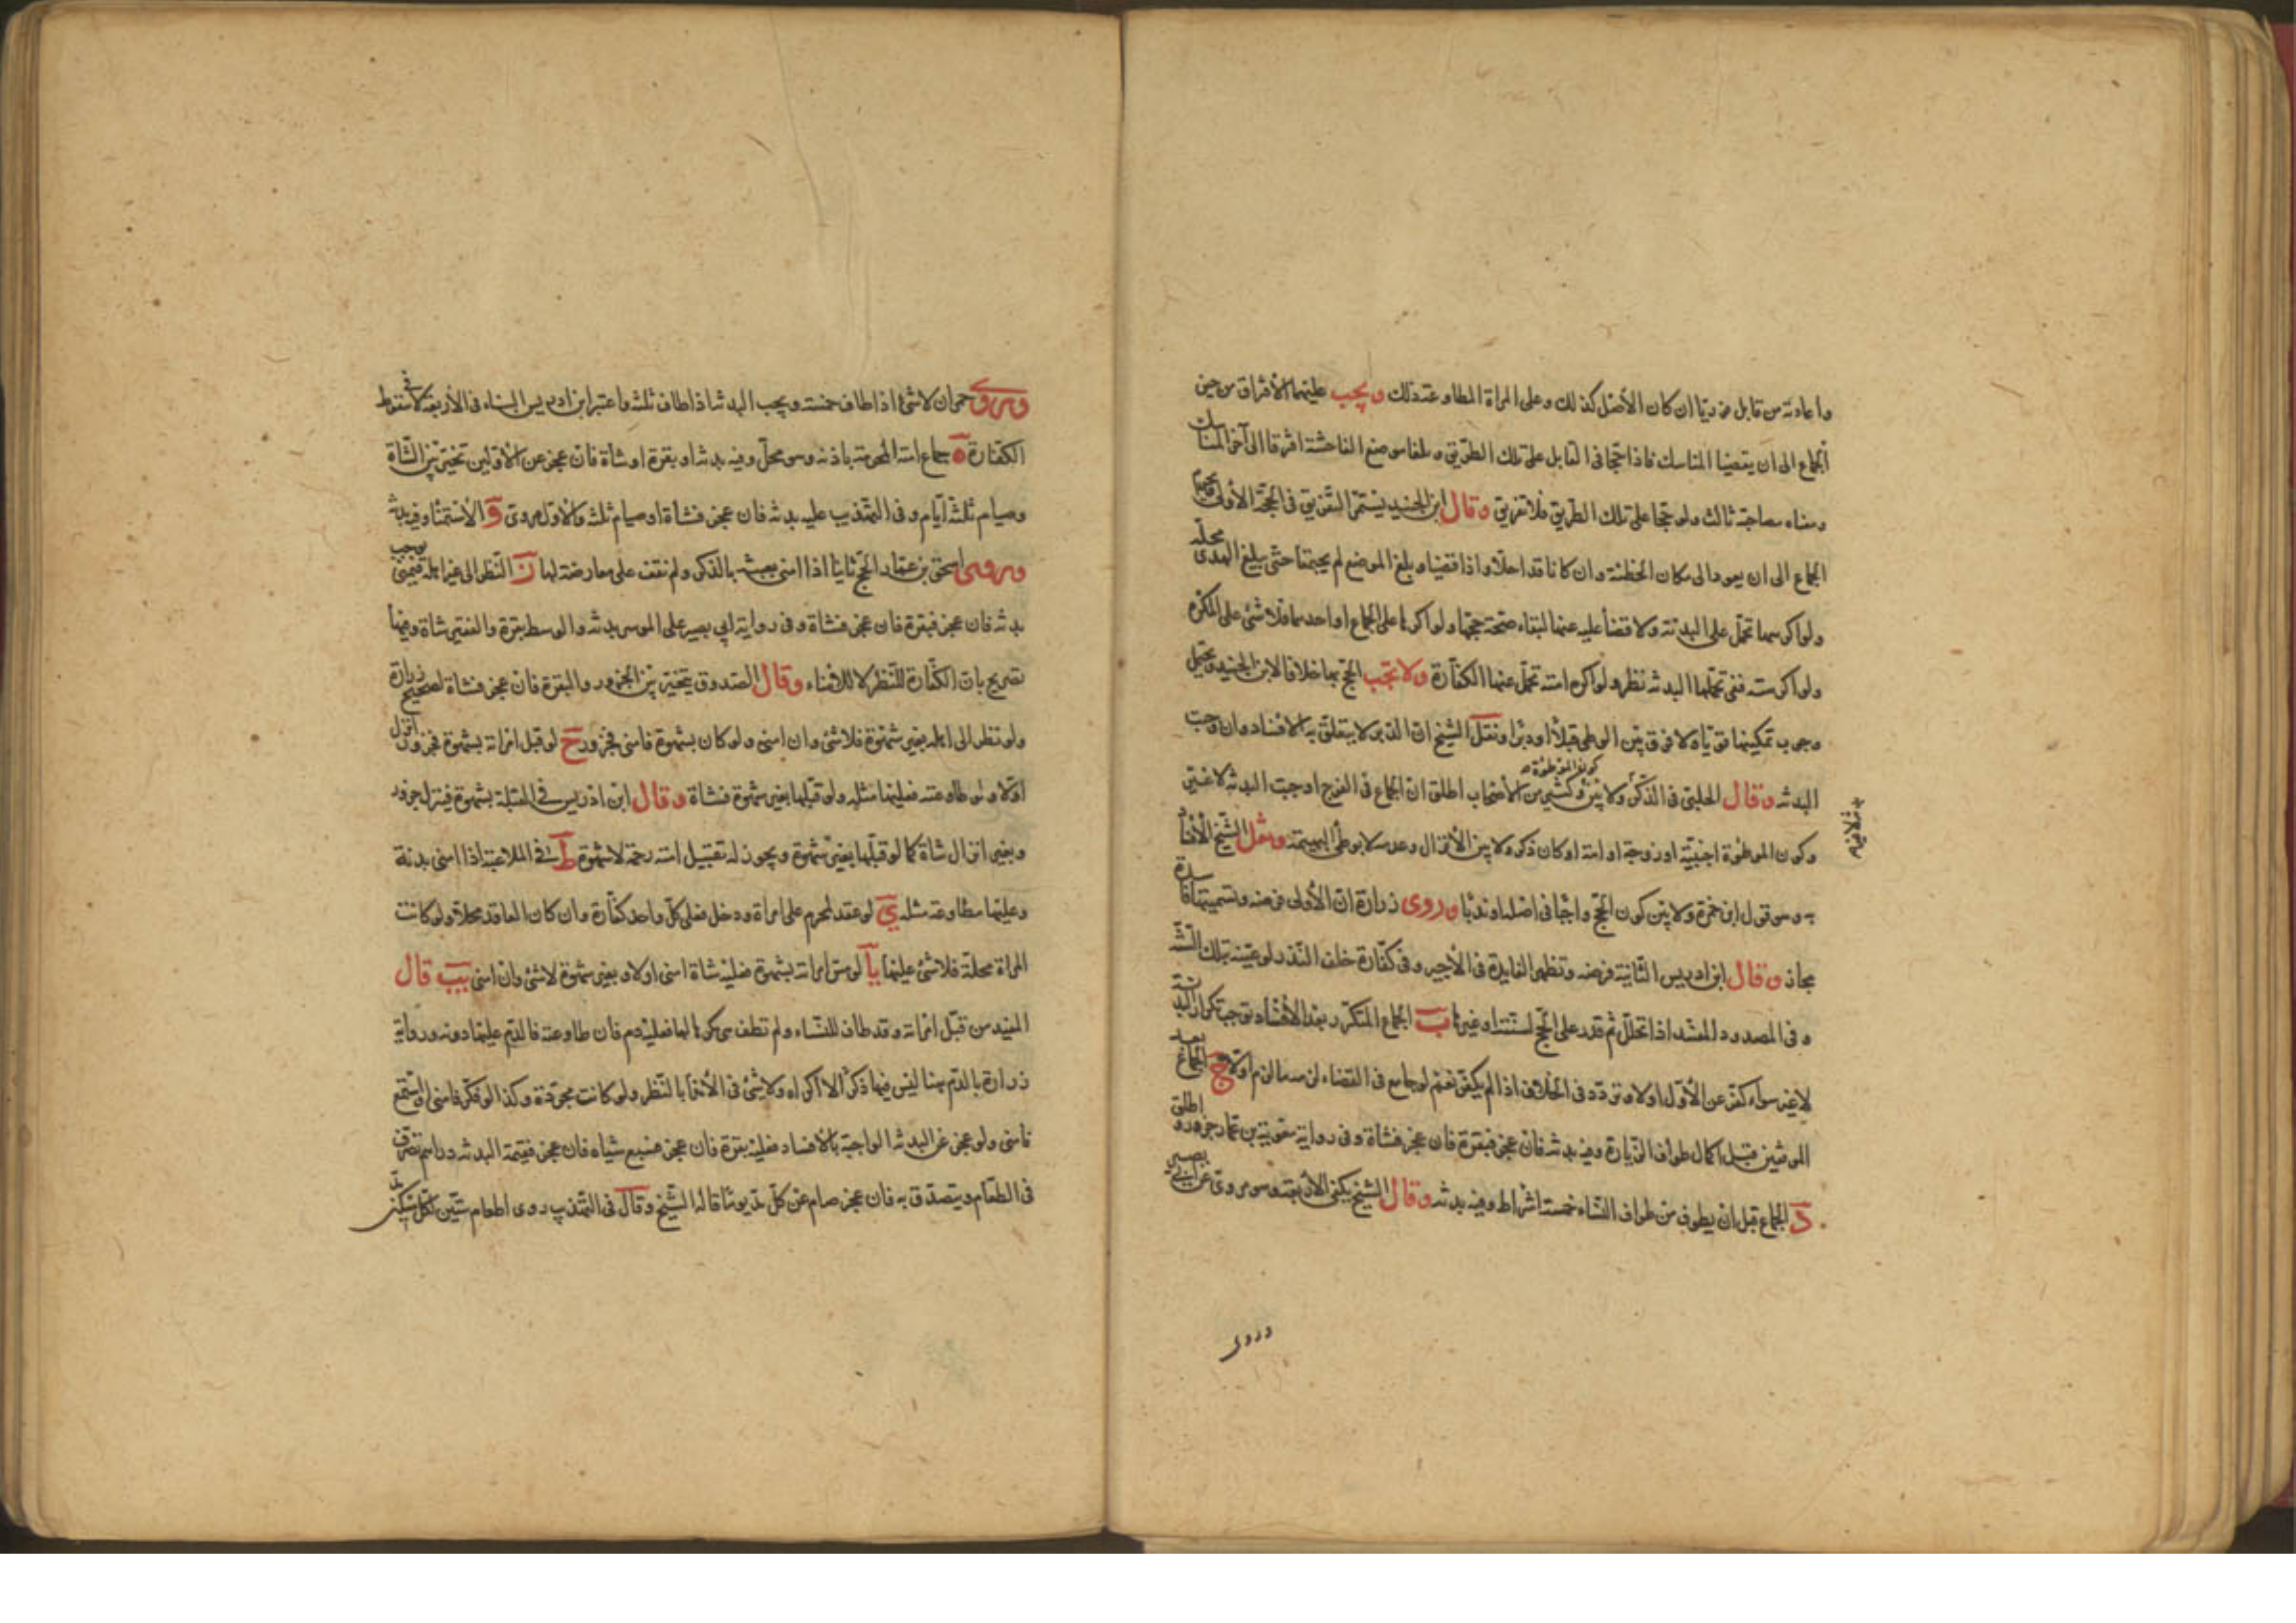 واعادته من قابل فوريا ان كان الأصل كذلك وعلى المراة المطاوعة ذلك ويجب عليهما الأفتراق من حين
الجماع الى ان يقضيا المناسك فاذا حجا فى القابل على تلك الطريق وبلغا موضع الفاحشة افترقا الى آخر المناسك
ومناه مصاحبة ثالث ولو حجا على تلك الطريق فلا تفريق وقال ابن الجنيد يستمر التفريق فى الحجة الأولى ويحرم
الجماع الى ان يعودا الى مكان الخطيئة وان كانا قد احلا واذا قضيا وبلغ الموضع لم يجتمعا حتى يبلغ الهدى محله
ولو اكرهها تحمل على البدنة ولا قضأ عليه عنها لبقاء صحة حجها ولو اكرها على الجماع او احدهما فلا شئ على المكره
ولو اكرهته ففى تحملها البدنة نظر ولو اكره امته تحمل عنها الكفارة ولا يجب الحج بها خلافا لابن الجنيد ويحتمل
وجوب تمكينها قويا ولا فرق بين الوطى قبلاً او دبرا ونقل الشيخ ان الدبر لا يتعلق به الافساد وان وجب
البدنة وقال الحلبى فى الذكر ولا بين وكثير من الأصحاب اطلق ان الجماع فى الفرج اوجبت البدنة لا غير
كون الموطوءة
وكون الموطوءة اجنبية او زوجة او امة او كان ذكر ولا بين الأنزال وعدمه لا بوطى البهيمة ونقل الشيخ الأفساد
به وهو قول ابن حمزة ولا بين كون الحج واجبا فى اصله او ندبا وروى زرارة ان الأولى فرضه وتسميتها فاسدة
مجاز وقال ابن ادريس الثانية فرضه وتظهر الفايدة فى الأجير وفى كفارة خلف النذر لو عينه بتلك السنة
وفى المصدود المفسد اذا تحلل ثم قدر على الحج لسنته او غيرها ب الجماع المتكرر بعد الأفساد يوجب تكرار البدنة
لا غير سواء كفر عن الأول اولا وتردد فى الخلاف اذا لم يكفر نعم لو جامع فى القضاء لزمه ما لزم اولا ج الجماع بعد
الموقفين قبل اكمال طواف الزيارة وفيه بدنة فان عجز فبقرة فان عجز فشاة وفى رواية معوية بن عمار جزور واطلق
د الجماع قبل ان يطوف من طواف النساء خمسة اشواط وفيه بدنة وقال الشيخ يكفى الأربعة وهو مروى عن ابى بصير
وروى
وروى حمران لا شئ اذا طاف خمسة ويجب البدنة اذا طاف ثلثه واعتبر ابن ادريس البناء فى الأربعة لا فى سقوط
الكفارة ه جماع امته المحرمة باذنه وهو محل وفيه بدنة او بقرة او شاة فان عجز عن الأولين تخير بين الشاة
وصيام ثلثة ايام وفى التهذيب عليه بدنة فان عجز فشاة او صيام ثلثه والأول مروى و الأستمناء وفيه بدنة
وروى اسحق بن عمار الحج ثانيا اذا امنى بعبثه بالذكر ولم نقف على معارضة لها ز النظر الى غير اهله فيمنى يوجب
بدنة فان عجز فبقرة فان عجز فشاة وفى رواية ابى بصير على الموسر بدنة والوسط بقرة والفقير شاة وفيها
تصريح بان الكفارة للنظر لا للامناء وقال الصدوق يتخير بين الجزور والبقرة فان عجز فشاة لصحيح زرارة
ولو نظر الى اهله بغير شهوة فلا شئ وان امنى ولو كان بشهوة فامنى فجزور ح لو قبل امراته بشهوة فجزور انزل
اولا ولو طاوعته فعليها مثله ولو قبلها بغير شهوة فشاة وقال ابن ادريس فى القبلة بشهوة فينزل جزور
وبغير انزال شاة كما لو قبلها بغير شهوة ويجوز له تقبيل امه رحمة لا شهوة ط فى الملاعبة اذا امنى بدنة
وعليها مطاوعة مثله ى لو عقد المحرم على امراة ودخل فعلى كل واحد كفارة وان كان العاقد محلا ولو كانت
المراة محلة فلا شئ عليها يا لو مس امراته بشهوة فعليه شاة امنى اولا وبغير شهوة لا شئ وان امنى يب قال
المفيد من قبل امراته وقد طاف للنساء ولم تطف هى مكرها لها فعليه دم فان طاوعته فالدم عليها دونه ورواية
زرارة بالدم هنا ليس فيها ذكر الاكراه ولا شئ فى الأمنا بالنظر ولو كانت مجردة وكذا لو فكر فامنى او استمع
فامنى ولو عجز عن البدنة الواجبة بالافساد فعليه بقرة فان عجز فسبع شياه فان عجز فقيمة البدنة دراهم تصرف
فى الطعام ويتصدق به فان عجز صام عن كل مد يوما قاله الشيخ وقال فى التهذيب روى اطعام ستين لكل مسكين مد